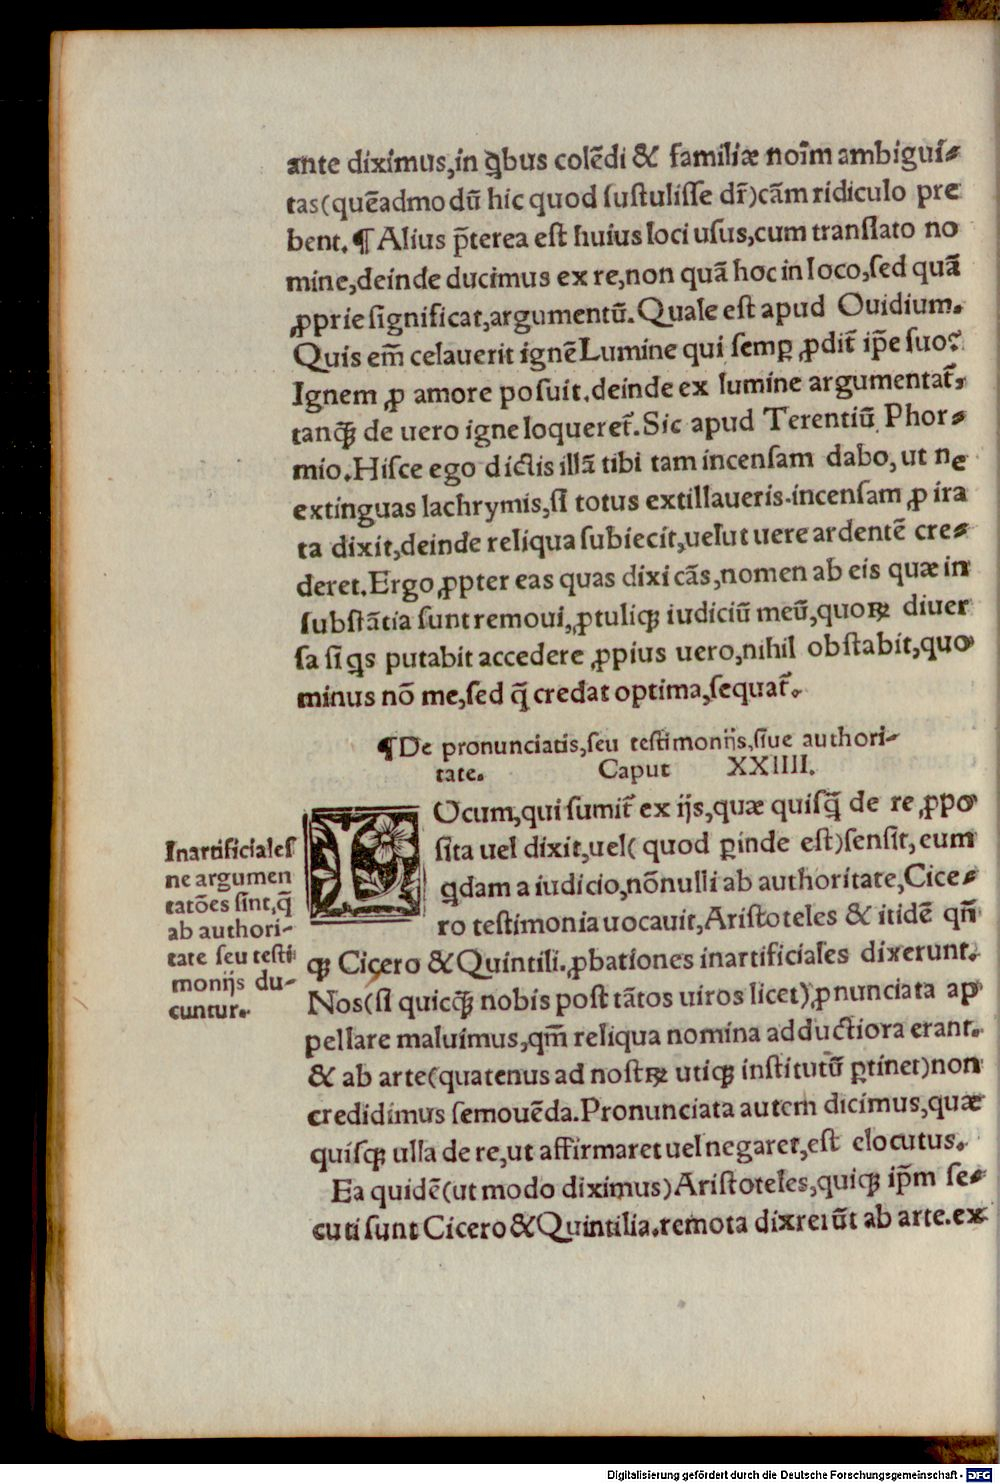 ante diximus,in ꝗbus colẽdi & familiæ noĩm ambigui⸗
tas(quẽadmodũ hic quod ſuſtuliſſe dr̃)cãm ridiculo pre
bent.¶Alius p̃terea eſt huius loci uſus,cum tranſlato no
mine,deinde ducimus ex re,non quã hoc in loco,ſed quã
ꝓprie ſignificat,argumentũ.Quale eſt apud Ouidium.
Quis em̃ celauerit ignẽ Lumine qui ſemꝑ ꝓdit̃ ip̃e ſuo?
Ignem ꝓ amore poſuit.deinde ex lumine argumentat̃,
tanꝗ̃ de uero igne loqueret̃.Sic apud Terentiũ Phor⸗
mio.Hiſce ego dictis illã tibi tam incenſam dabo,ut ne
extinguas lachrymis,ſi totus extillaueris.incenſam ꝓ ira
ta dixit,deinde reliqua ſubiecit,uelut uere ardentẽ cre⸗
deret.Ergo ꝓpter eas quas dixi cãs,nomen ab eis quæ in
ſubſtãtia ſunt remoui,ꝓtuliqꝫ iudiciũ meũ,quoꝝ diuer
ſa ſi ꝗs putabit accedere ꝓpius uero,nihil obſtabit,quo
minus nõ me,ſed q̃ credat optima,ſequat̃.
¶De pronunciatis,ſeu teſtimonijs,ſiue authori⸗
tate. Caput XXIIII.
LOcum,qui ſumit̃ ex ijs,quæ quiſq̃ de re ꝓpo
ſita uel dixit,uel( quod ꝑinde eſt)ſenſit,eum
ꝗdam a iudicio,nõnulli ab authoritate,Cice⸗
ro teſtimonia uocauit,Ariſtoteles & itidẽ qñ
qꝫ Cicero & Quintili.ꝓbationes inartificiales dixerunt.
Nos(ſi quicꝗ̃ nobis poſt tãtos uiros licet)ꝓnunciata ap
pellare maluimus,qm̃ reliqua nomina adductiora erant.
& ab arte(quatenus ad noſtꝝ utiqꝫ inſtitutũ ꝑtinet)non
credidimus ſemouẽda.Pronunciata autem dicimus,quæ
quiſqꝫ ulla de re,ut affirmaret uel negaret,eſt elocutus.
Ea quidẽ(ut modo diximus)Ariſtoteles,quiqꝫ ip̃m ſe⸗
cuti ſunt Cicero & Quintilia.remota dixreiũt ab arte.ex
Inartificialeſ
ne argumen
tatões ſint,q̃
ab authori⸗
tate ſeu teſti
monijs du⸗
cuntur.
Digitalisierung gefördert durch die Deutsche Forschungsgemeinschaft - DFG